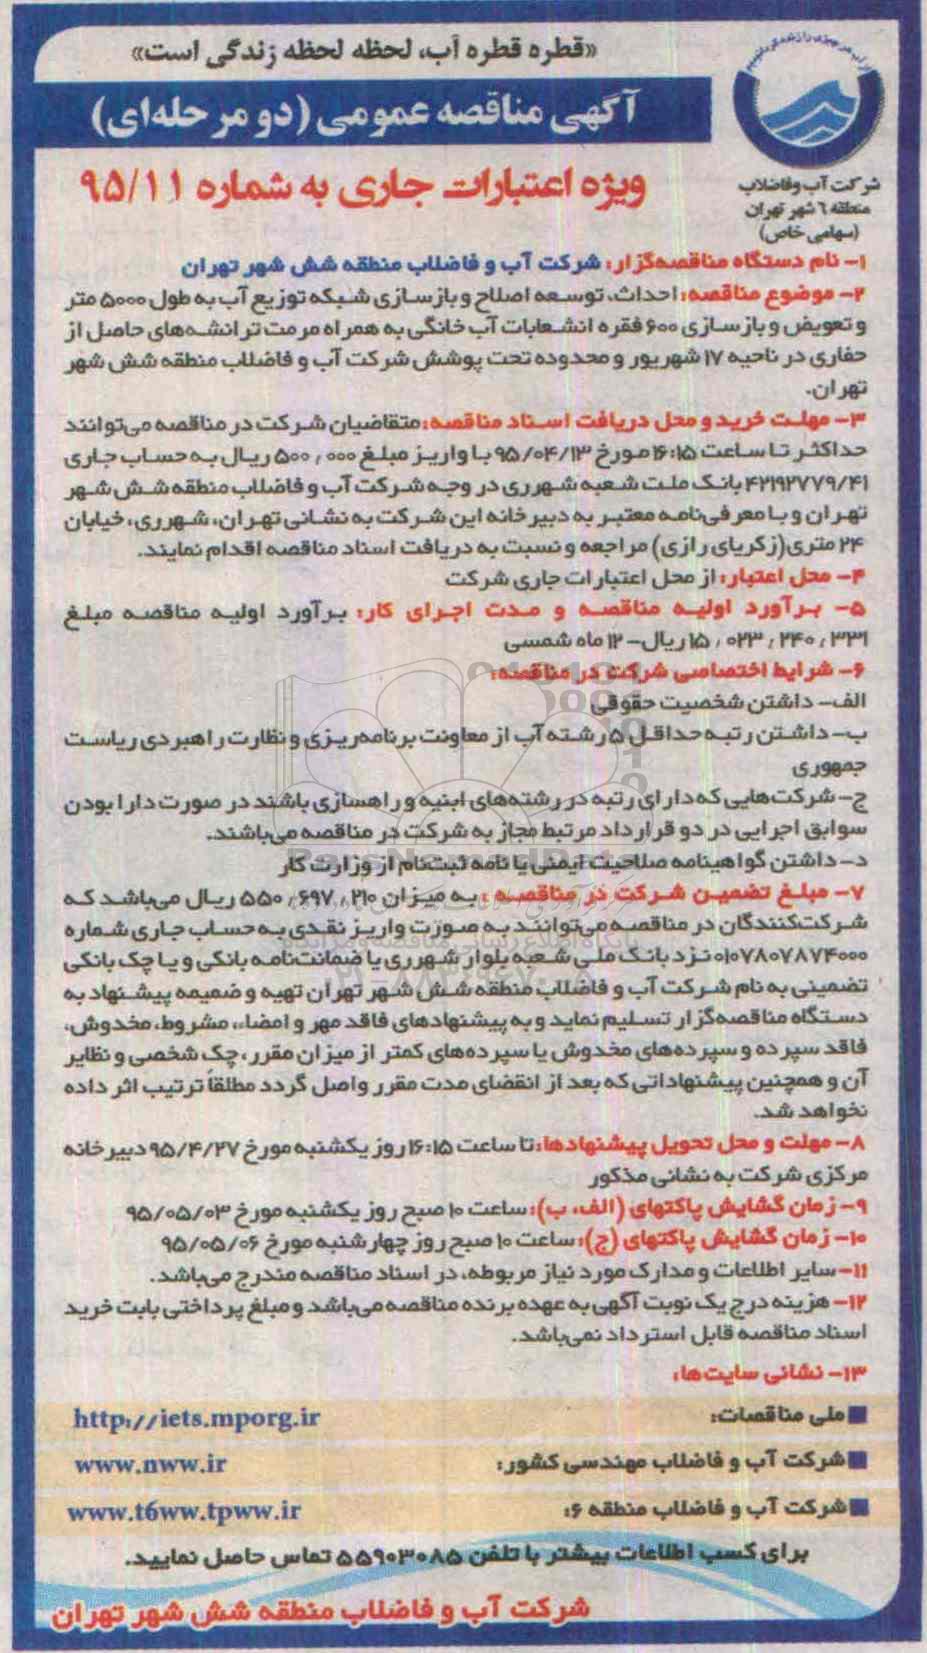 «قطره قطره آب، لحظه لحظه زندگی است»
آگهی مناقصه عمومی (دو مرحله‌ای)
ویژه اعتبارات جاری به شماره ۹۵/۱۱
شرکت آب وفاضلاب
منطقه ۶ شهر تهران
(سهامی خاص)
۱- نام دستگاه مناقصه‌گزار: شرکت آب و فاضلاب منطقه شش شهر تهران
۲- موضوع مناقصه: احداث، توسعه اصلاح و بازسازی شبکه توزیع آب به طول ۵۰۰۰ متر
و تعویض و بازسازی ۶۰۰ فقره انشعابات آب خانگی به همراه مرمت ترانشه‌های حاصل از
حفاری در ناحیه ۱۷ شهریور و محدوده تحت پوشش شرکت آب و فاضلاب منطقه شش شهر
تهران.
۳- مهلت خرید و محل دریافت اسناد مناقصه: متقاضیان شرکت در مناقصه می‌توانند
حداکثر تا ساعت ۱۶:۱۵ مورخ ۹۵/۰۴/۱۳ با واریز مبلغ ۵۰۰,۰۰۰ ریال به حساب جاری
۴۲۱۹۲۷۷۹/۴۱ بانک ملت شعبه شهرری در وجه شرکت آب و فاضلاب منطقه شش شهر
تهران و با معرفی‌نامه معتبر به دبیرخانه این شرکت به نشانی تهران، شهرری، خیابان
۲۴ متری (زکریای رازی) مراجعه و نسبت به دریافت اسناد مناقصه اقدام نمایند.
۴- محل اعتبار: از محل اعتبارات جاری شرکت
۵- برآورد اولیه مناقصه و مدت اجرای کار: برآورد اولیه مناقصه مبلغ
۱۵,۰۲۳,۲۴۰,۳۳۱ ریال- ۱۲ ماه شمسی
۶- شرایط اختصاصی شرکت در مناقصه:
الف- داشتن شخصیت حقوقی
ب- داشتن رتبه حداقل ۵ رشته آب از معاونت برنامه‌ریزی و نظارت راهبردی ریاست
جمهوری
ج- شرکت‌هایی که دارای رتبه در رشته‌های ابنیه و راهسازی باشند در صورت دارا بودن
سوابق اجرایی در دو قرارداد مرتبط مجاز به شرکت در مناقصه می‌باشند.
د- داشتن گواهینامه صلاحیت ایمنی یا نامه ثبت‌نام از وزارت کار
۷- مبلغ تضمین شرکت در مناقصه: به میزان ۵۵۰,۶۹۷,۲۱۰ ریال می‌باشد که
شرکت‌کنندگان در مناقصه می‌توانند به صورت واریز نقدی به حساب جاری شماره
۰۱۰۷۸۰۷۸۷۴۰۰۰ نزد بانک ملی شعبه بلوار شهرری یا ضمانت‌نامه بانکی و یا چک بانکی
تضمینی به نام شرکت آب و فاضلاب منطقه شش شهر تهران تهیه و ضمیمه پیشنهاد به
دستگاه مناقصه‌گزار تسلیم نماید و به پیشنهادهای فاقد مهر و امضاء، مشروط، مخدوش،
فاقد سپرده و سپرده‌های مخدوش یا سپرده‌های کمتر از میزان مقرر، چک شخصی و نظایر
آن و همچنین پیشنهاداتی که بعد از انقضای مدت مقرر واصل گردد مطلقاً ترتیب اثر داده
نخواهد شد.
۸- مهلت و محل تحویل پیشنهادها: تا ساعت ۱۶:۱۵ روز یکشنبه مورخ ۹۵/۴/۲۷ دبیرخانه
مرکزی شرکت به نشانی مذکور
۹- زمان گشایش پاکتهای (الف، ب): ساعت ۱۰ صبح روز یکشنبه مورخ ۹۵/۰۵/۰۳
۱۰- زمان گشایش پاکتهای (ج): ساعت ۱۰ صبح روز چهارشنبه مورخ ۹۵/۰۵/۰۶
۱۱- سایر اطلاعات و مدارک مورد نیاز مربوطه، در اسناد مناقصه مندرج می‌باشد.
۱۲- هزینه درج یک نوبت آگهی به عهده برنده مناقصه می‌باشد و مبلغ پرداختی بابت خرید
اسناد مناقصه قابل استرداد نمی‌باشد.
۱۳- نشانی سایت‌ها:
ملی مناقصات: http://iets.mporg.ir
شرکت آب و فاضلاب مهندسی کشور: www.nww.ir
شرکت آب و فاضلاب منطقه ۶: www.t6ww.tpww.ir
برای کسب اطلاعات بیشتر با تلفن ۵۵۹۰۳۰۸۵ تماس حاصل نمایید.
شرکت آب و فاضلاب منطقه شش شهر تهران